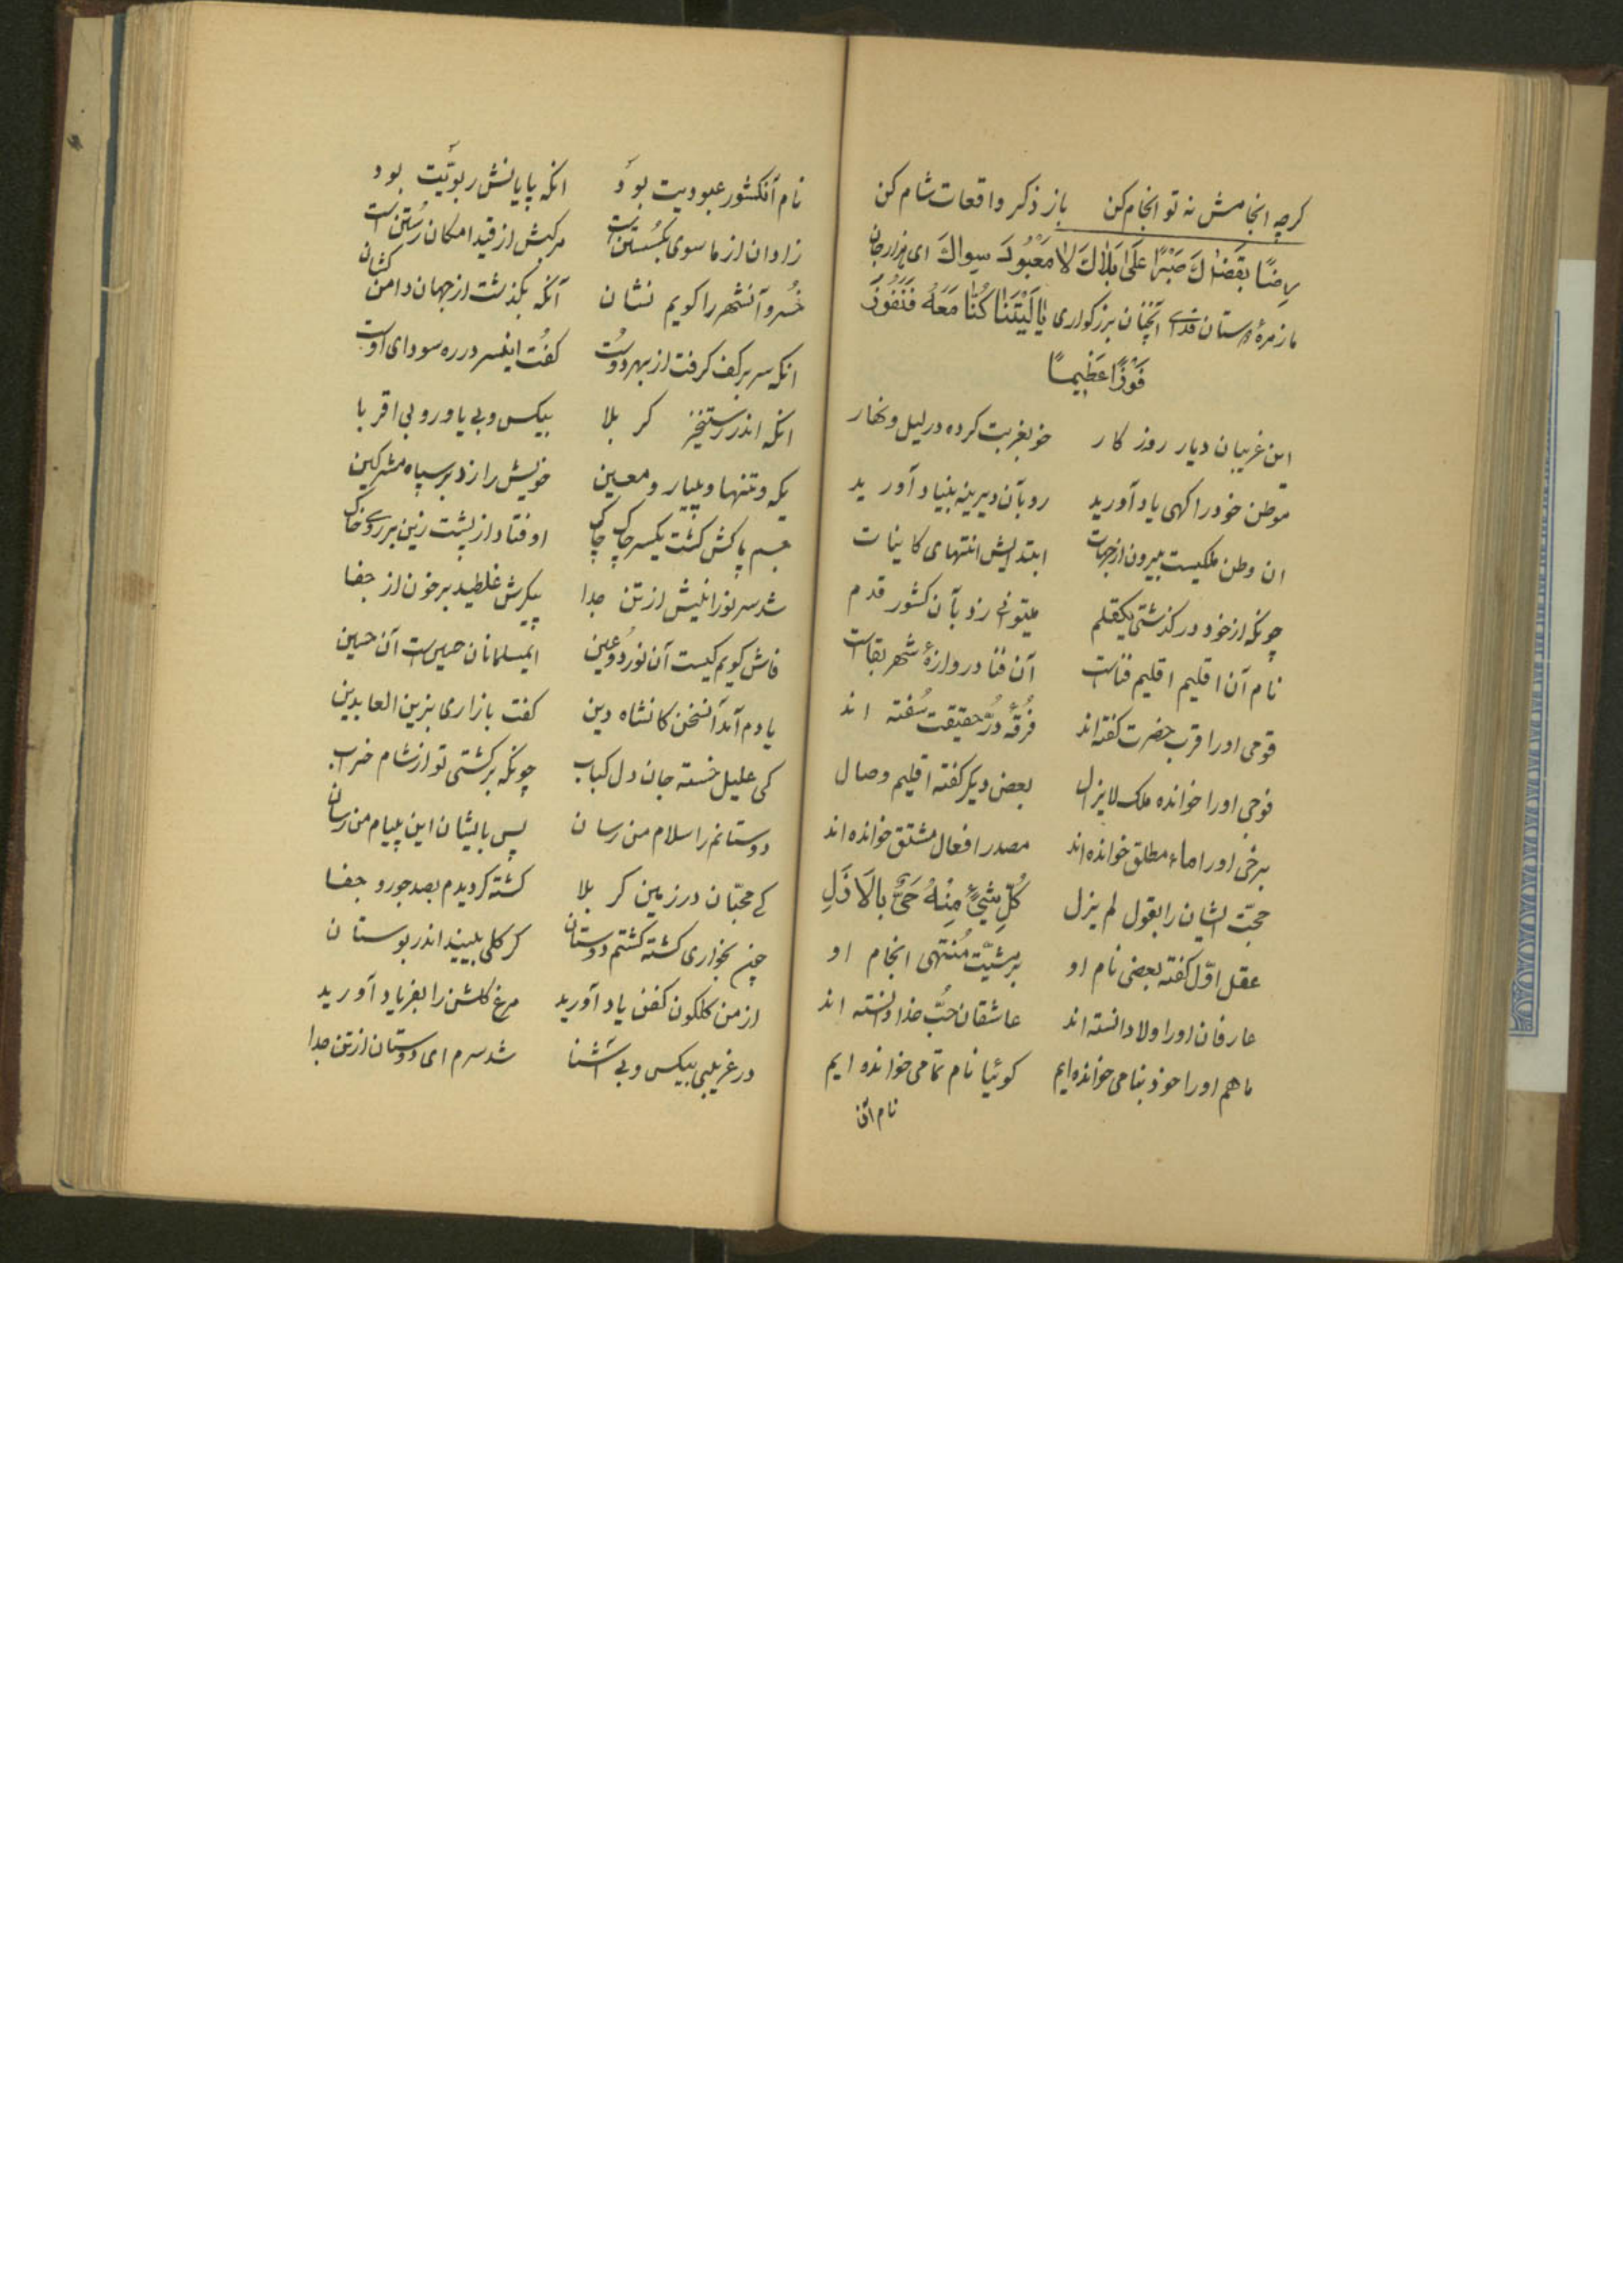 کرچه انجامش نه تو انجام کن باز ذکر واقعات شام کن
رضًا بقَضاكَ صَبْرًا عَلیٰ بَلاٰكَ لاٰ مَعْبُودَ سِواكَ ای هزار جان
ما زمرهٔ دوستان فدای آنچنان بزرکواری یٰا لَیْتَنٰا کُنّٰا مَعَهُ فَنَفُوزَ
فَوْزًا عَظیمًا
این غریبان دیار روز کار خو بغربت کرده در لیل و نهار
موطن خود را کهی یاد آورید رو بآن دیرینه بنیاد آورید
ان وطن ملکیست بیرون از جهات ابتدایش انتهای کاینات
چونکه از خود در کذشتی یکقلم میتوانی زد بآن کشور قدم
نام آن اقلیم اقلیم فناست آن فنا دروازهٔ شهر بقاست
قومی او را قرب حضرت کفته‌اند فُرقهٔ دُرّ حقیقت سُفته اند
فوجی او را خوانده ملک لایزال بعض دیکر کفته اقلیم وصال
برخی او را ماء مطلق خوانده‌اند مصدر افعال مشتق خوانده‌اند
حجّت ایشان را بقول لم یزل کُلِّ شَیْیٍٔ مِنْهُ حَیٌّ بالاَذَلِ
عقل اوّل کفته بعضی نام او بر مشیّت مُنتهی انجام او
عارفان او را ولا دانسته اند عاشقان حُبّ خدا دانسته اند
ما هم او را خود بنامی خوانده‌ایم کوئیا نام تمامی خوانده ایم
نام آن
نام آنکشور عبودیت بود انکه پایانش ربوبّیت بود
زاد ان از ما سوی بکسُستن است مرکبش از قید امکان رُستن است
خُسرو آنشهر را کویم نشان آنکه بکذشت از جهان دامن کشان
انکه سر بر کف کرفت از بهر دوست کفُت اینسر در ره سودای اوست
انکه اندر رستخیز کربلا بیکس و بی یاور و بی اقربا
یکه و تنها و بییار و معین خویش را زد بر سپاه مشرکین
جسم پاکش کشت یکسر چاک چاک اوفتاد از پشت زین بر روی خاک
شد سر نورانیش از تن جدا پیکرش غلطید بر خون از جفا
فاش کویم کیست آن نور دو عین ایمسلمانان حسین است آن حسین
یادم آمد آنسخن کانشاه دین کفت بازاری بزین العابدین
کی علیل خسته جان دل کباب چونکه برکشتی تو از شام خراب
دوستانم را سلام من رسان پس بایشان این پیام من رسان
کی محبّان در زمین کربلا کشته کردیدم بصد جور و جفا
چون بخواری کشته کشتم دوستان کر کلی بینید اندر بوستان
از من کلکون کفن یاد آورید مرغ کلشن را بفریاد آورید
در غریبی بیکس و بی آشنا شد سرم ای دوستان از تن جدا